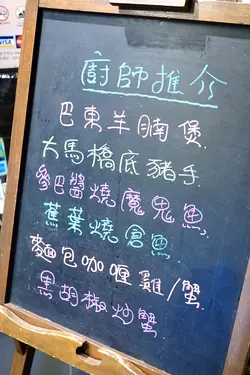 VISA
廚師推介
巴東羊腩煲
大馬橋底豬手
參巴醬燒魔鬼魚
蕉葉燒倉魚
麵包咖喱雞/蟹
黑胡椒炒蟹